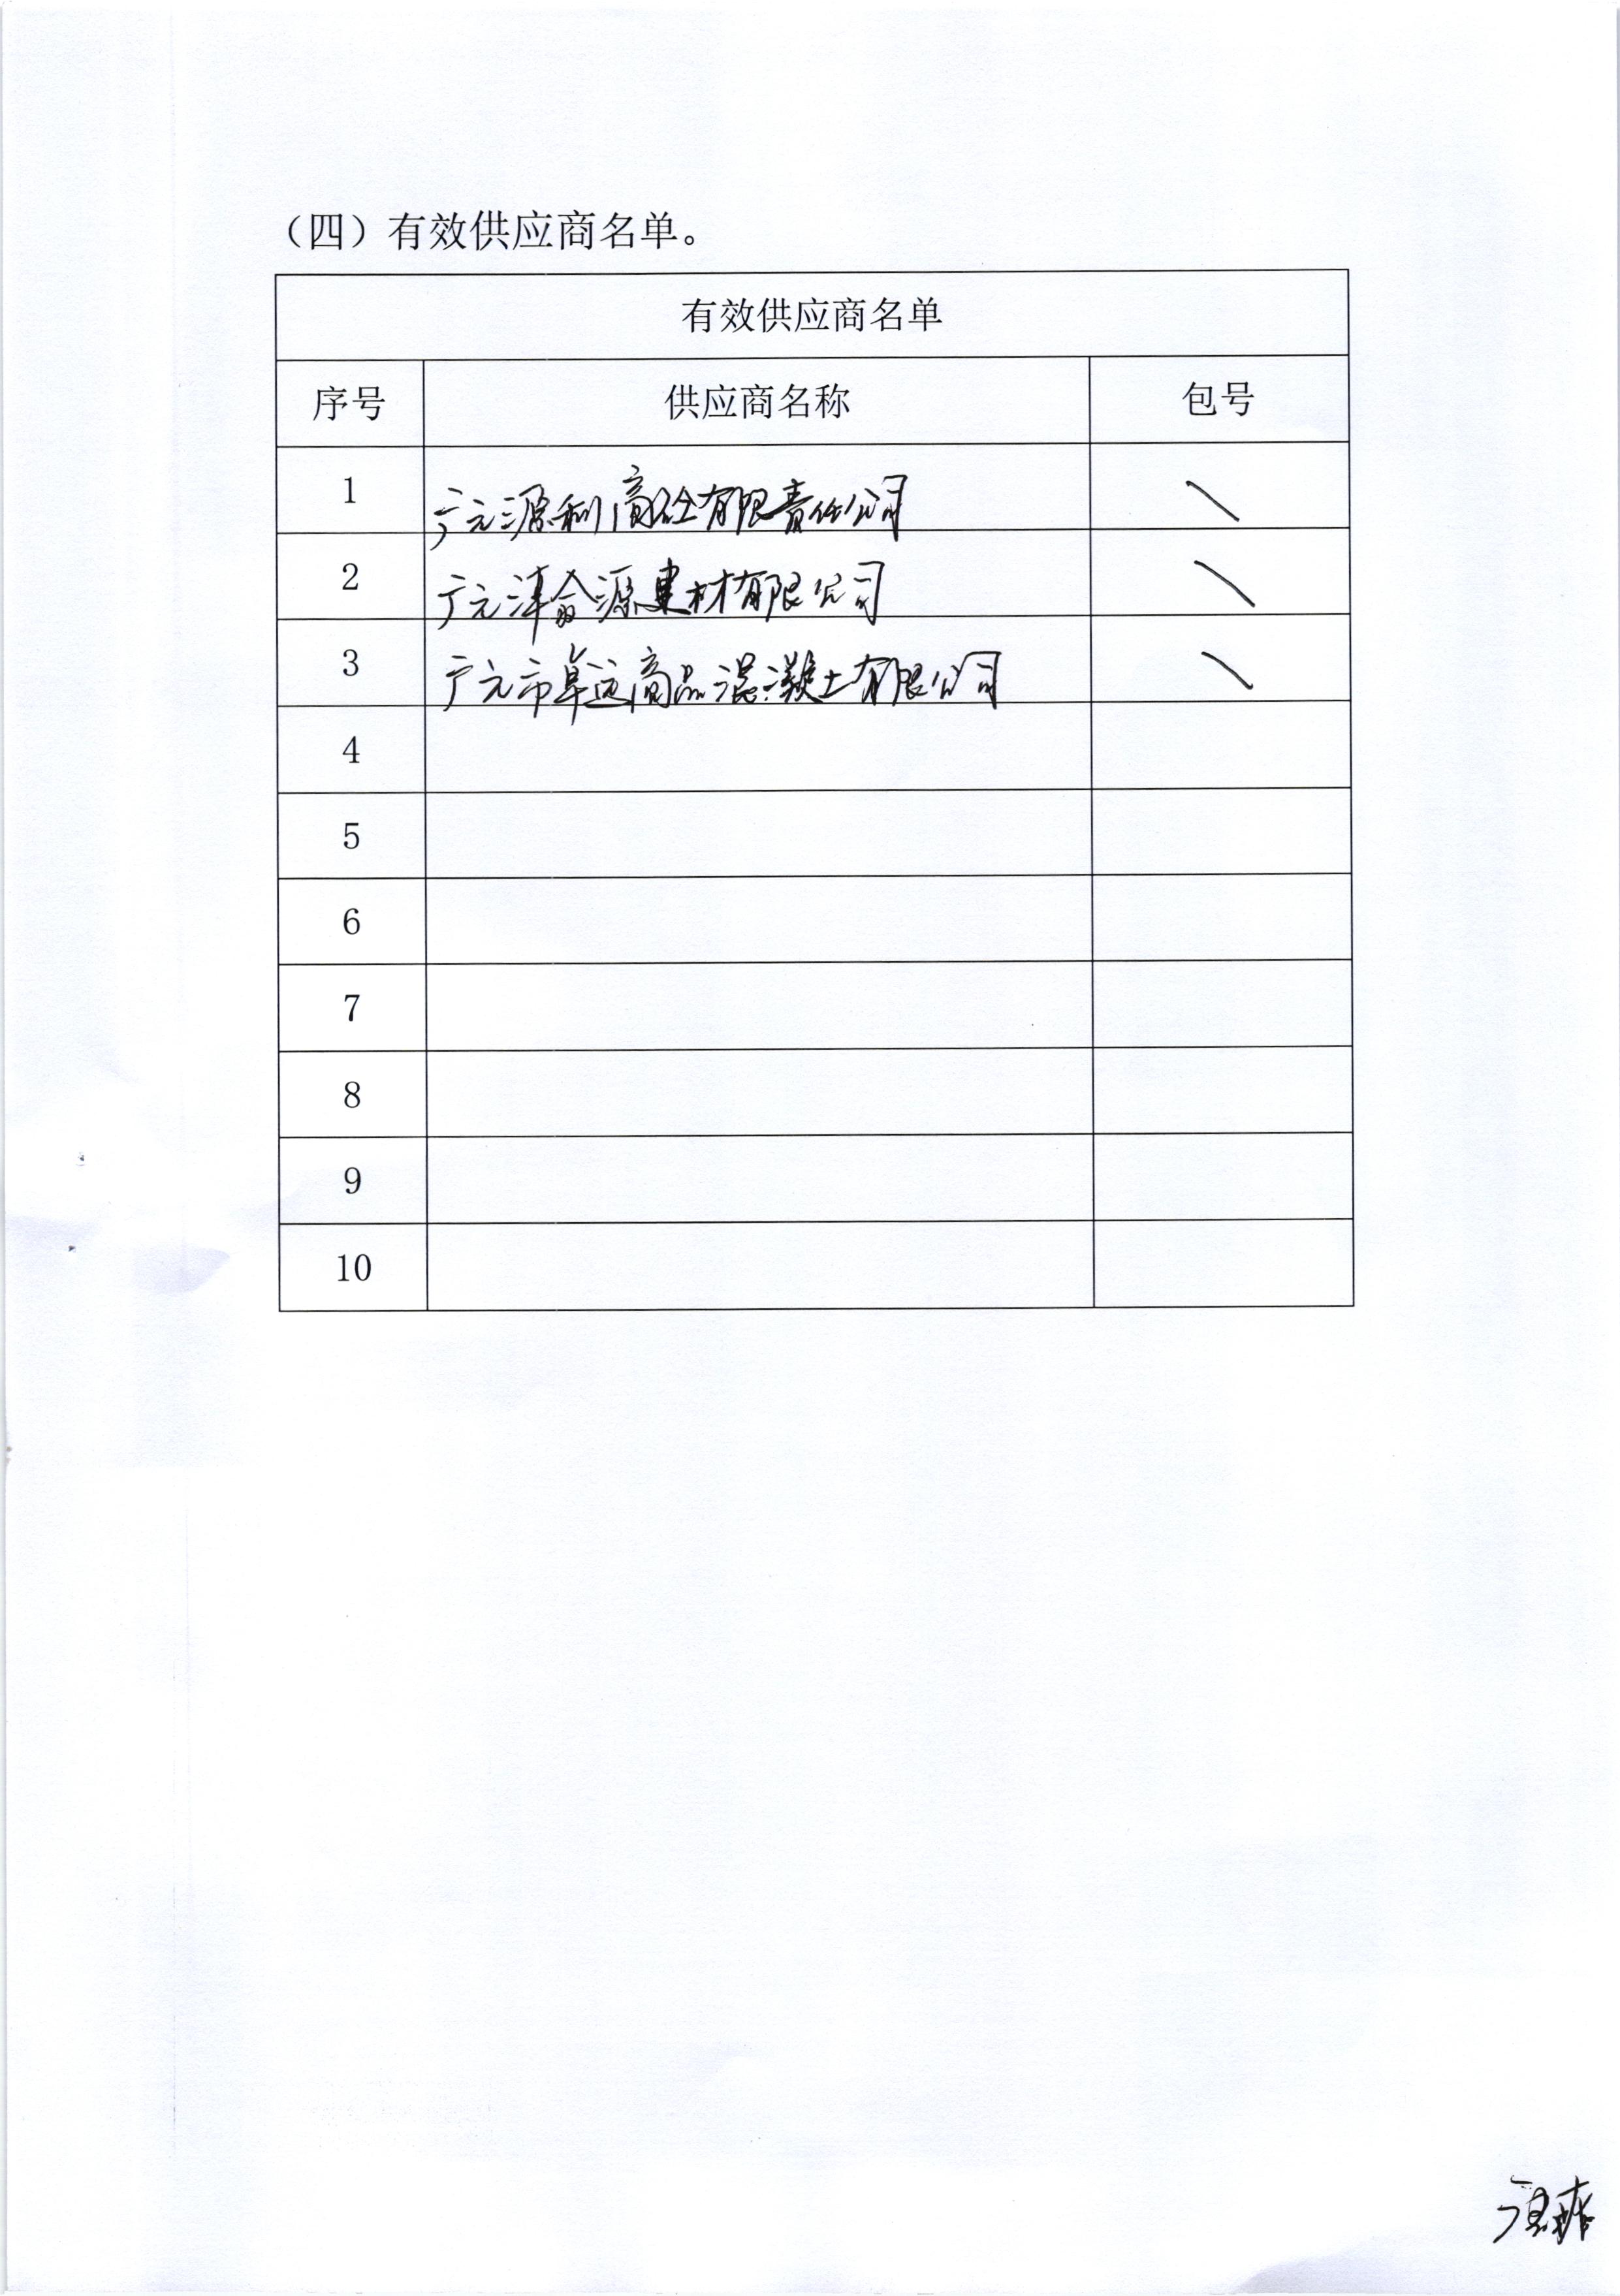 （四）有效供应商名单。
有效供应商名单
序号 供应商名称 包号
1 广元源利商砼有限责任公司 \
2 广元泽翕源建材有限公司 \
3 广元市阜远商品混凝土有限公司 \
4
5
6
7
8
9
10